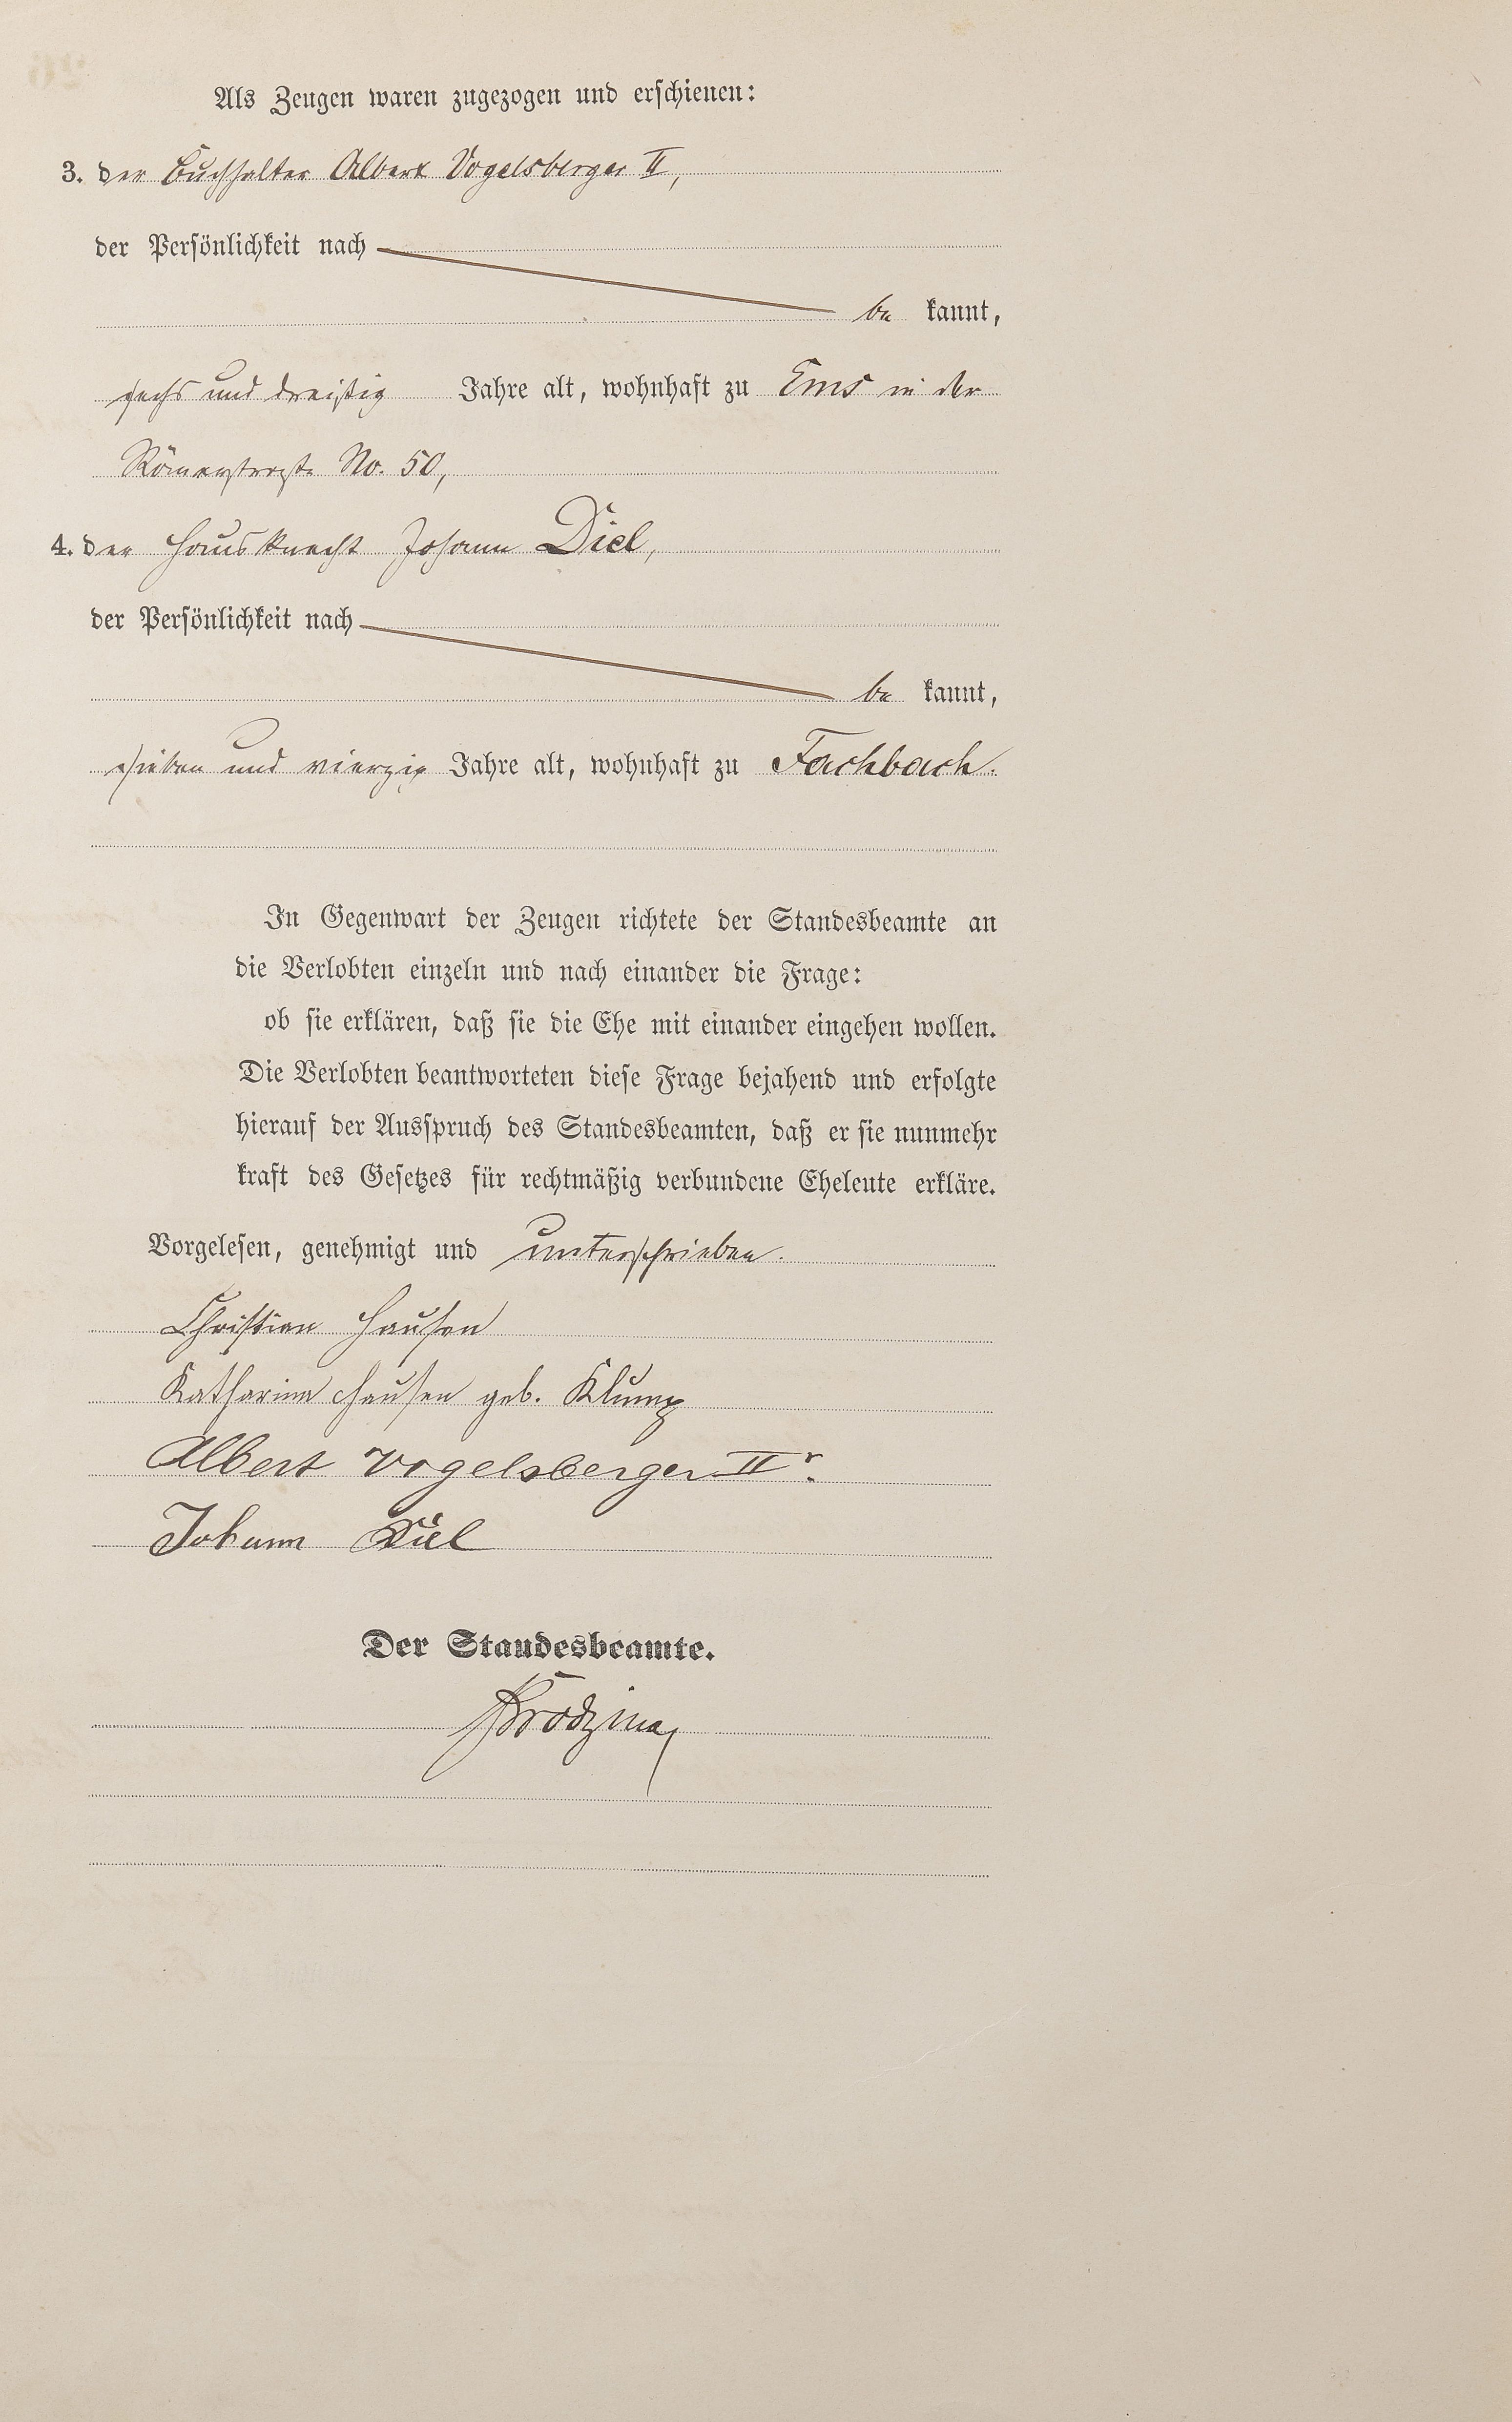 Als Zeugen waren zugezogen und erschienen:
3. der Buchhalter Albert Vogelsberger II,
der Persönlichkeit nach
be kannt,
sechs und dreißig Jahre alt, wohnhaft zu Ems in der
Römerstraße No. 50,
4. der Hausknecht Johann Diel,
der Persönlichkeit nach
be kannt,
sieben und vierzig Jahre alt, wohnhaft zu Fachbach.
In Gegenwart der Zeugen richtete der Standesbeamte an
die Verlobten einzeln und nach einander die Frage:
ob sie erklären, daß sie die Ehe mit einander eingehen wollen.
Die Verlobten beantworteten diese Frage bejahend und erfolgte
hierauf der Ausspruch des Standesbeamten, daß er sie nunmehr
kraft des Gesetzes für rechtmäßig verbundene Eheleute erkläre.
Vorgelesen, genehmigt und unterschrieben.
Christian Hausen
Katharina Hausen geb. Klump
Albert Vogelsberger IIr.
Johann Diel
Der Standesbeamte.